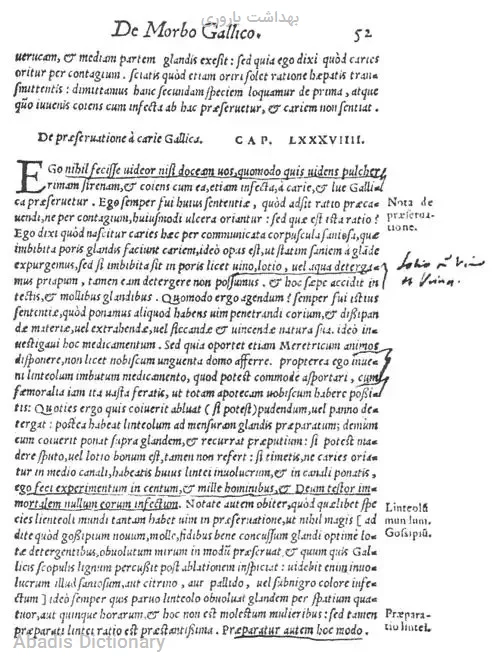 بهداشت باروری
De Morbo Gallico. 52
uerucam, & mediam partem glandis exesit: sed quia ego dixi quòd caries
oritur per contagium. sciatis quòd etiam oriri solet ratione hæpatis trans
smittentis: dimittamus hanc secundam speciem loquamur de prima, atque
quo iuuenis coiens cum infecta ab hac præseruetur, & cariem non sentiat.
De præseruatione à carie Gallica. CAP. LXXXVIIII.
EGo nihil fecisse uideor nisi doceam uos, quomodo quis uidens pulcher
rimam sirenam, & coiens cum ea, etiam infecta, à carie, & lue Galli
ca præseruetur. Ego semper fui huius sententiæ, quòd adsit ratio præca
uendi, ne per contagium, huiusmodi ulcera oriantur: sed quæ est ista ratio?
Nota de præseruatione.
Ego dixi quòd nascitur caries hæc per communicata corpuscula saniosa, quæ
imbibita poris glandis faciunt cariem, ideò opus est, ut statim saniem à glāde
expurgemus, sed si imbibita sit in poris licet uino, lotio, uel aqua deterga
mus priapum, tamen eam detergere non possumus. & hoc sæpe accidit in
tectis, & mollibus glandibus. Quomodo ergo agendum? semper fui istius
sententiæ, quòd ponamus aliquod habens uim penetrandi corium, & dissipan
dæ materiæ, uel extrahendæ, uel siccandæ & uincendæ natura sua. ideò in=
uestigaui hoc medicamentum. Sed quia oportet etiam Meretricum animos
disponere, non licet nobiscum unguenta domo afferre. propterea ego inue=
ni linteolum imbutum medicamento, quod potest commode asportari, cum
fæmoralia iam ita uasta feratis, ut totam apotecam uobiscum habere possi=
tis: Quoties ergo quis coiuerit abluat (si potest) pudendum, uel panno de=
tergat: postea habeat linteolum ad mensuram glandis præparatum; demum
cum coiuerit ponat supra glandem, & recurrat præputium: si potest ma=
dere sputo, uel lotio bonum est, tamen non refert: si timetis, ne caries oria
tur in medio canali, habeatis huius lintei inuolucrum, & in canali ponatis,
ego feci experimentum in centum, & mille hominibus, & Deum testor im
mortalem nullum eorum infectum. Notate autem obiter, quòd quælibet spe
cies linteoli mundi tantam habet uim in præseruatione, ut nihil magis [ad
Linteolū mundum.
Gossipiū.
dite quòd gossipium nouum, molle, fidibus bene concussum glandi optimè lo=
tæ detergentibus, obuolutum mirum in modū præseruat, & quum quis Gal=
licis scopulis lignum percussit post ablationem inspiciat: uidebit enim inuo=
lucrum illud saniosum, aut citrino, aut pallido, uel subnigro colore infe=
ctum] ideò semper quis paruo linteolo obuoluat glandem per spatium qua=
tuor, aut quinque horarum, & hoc non est molestum mulieribus: sed tamen
præparati lintei ratio est præstantissima. Præparatur autem hoc modo.
Præparatio lintei.
Abadis Dictionary